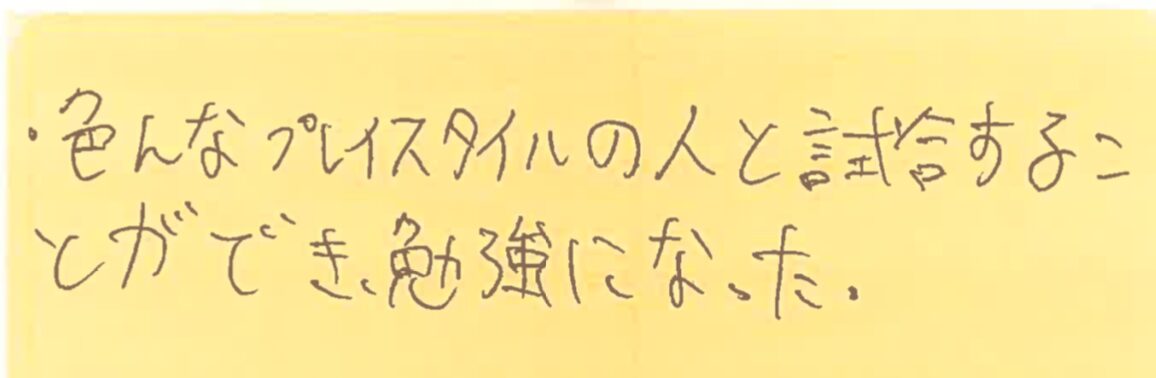 ・色んなプレイスタイルの人と試合するこ
とができ、勉強になった。